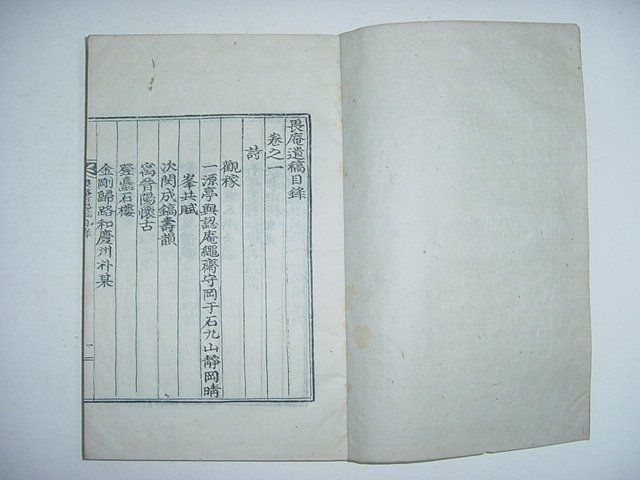 畏庵遺稿目錄
卷之一
詩
觀稼
一源亭與認庵繩齋守岡于石九山靜岡晴
峯共賦
次閔成鎬壽韻
寓晉陽懷古
登矗石樓
金剛歸路和慶州朴某